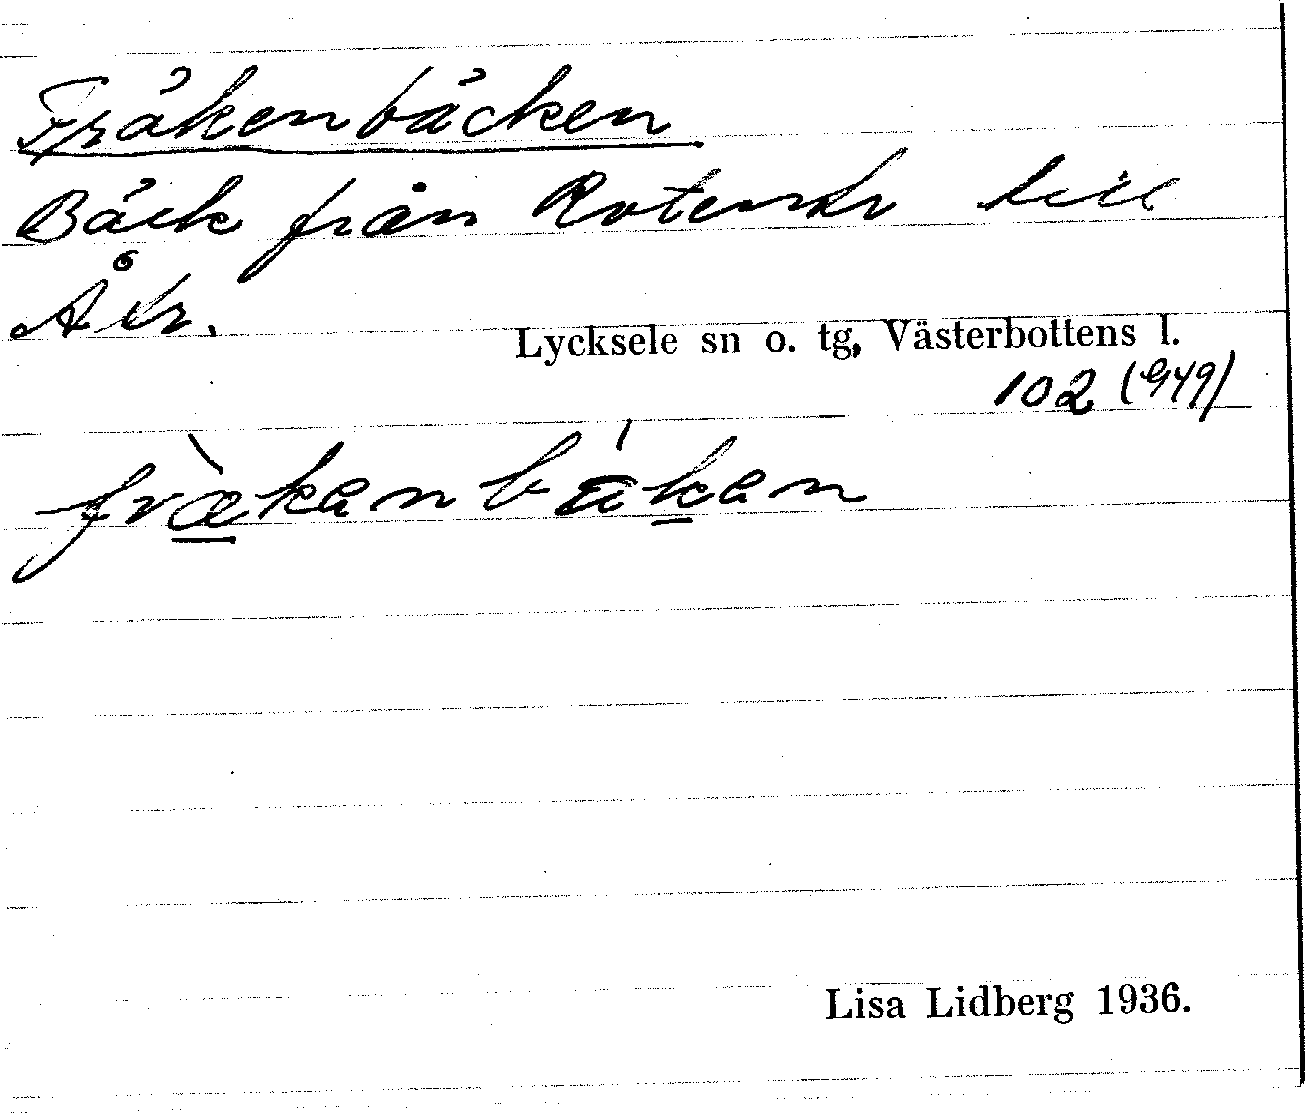 Fräkenbäcken
Bäck från Rotenstr till
Åtr.
Lycksele sn o. tg, Västerbottens l.
102 (949)
fræ̀kanbákan
Lisa Lidberg 1936.